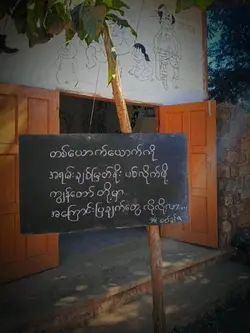 တစ်ယောက်ယောက်ကို
အရမ်းချစ်မြတ်နိုး ပစ်လိုက်ဖို့
ကျွန်တော် တို့မှာ
အကြောင်းပြချက်တွေ လိုလို့လား